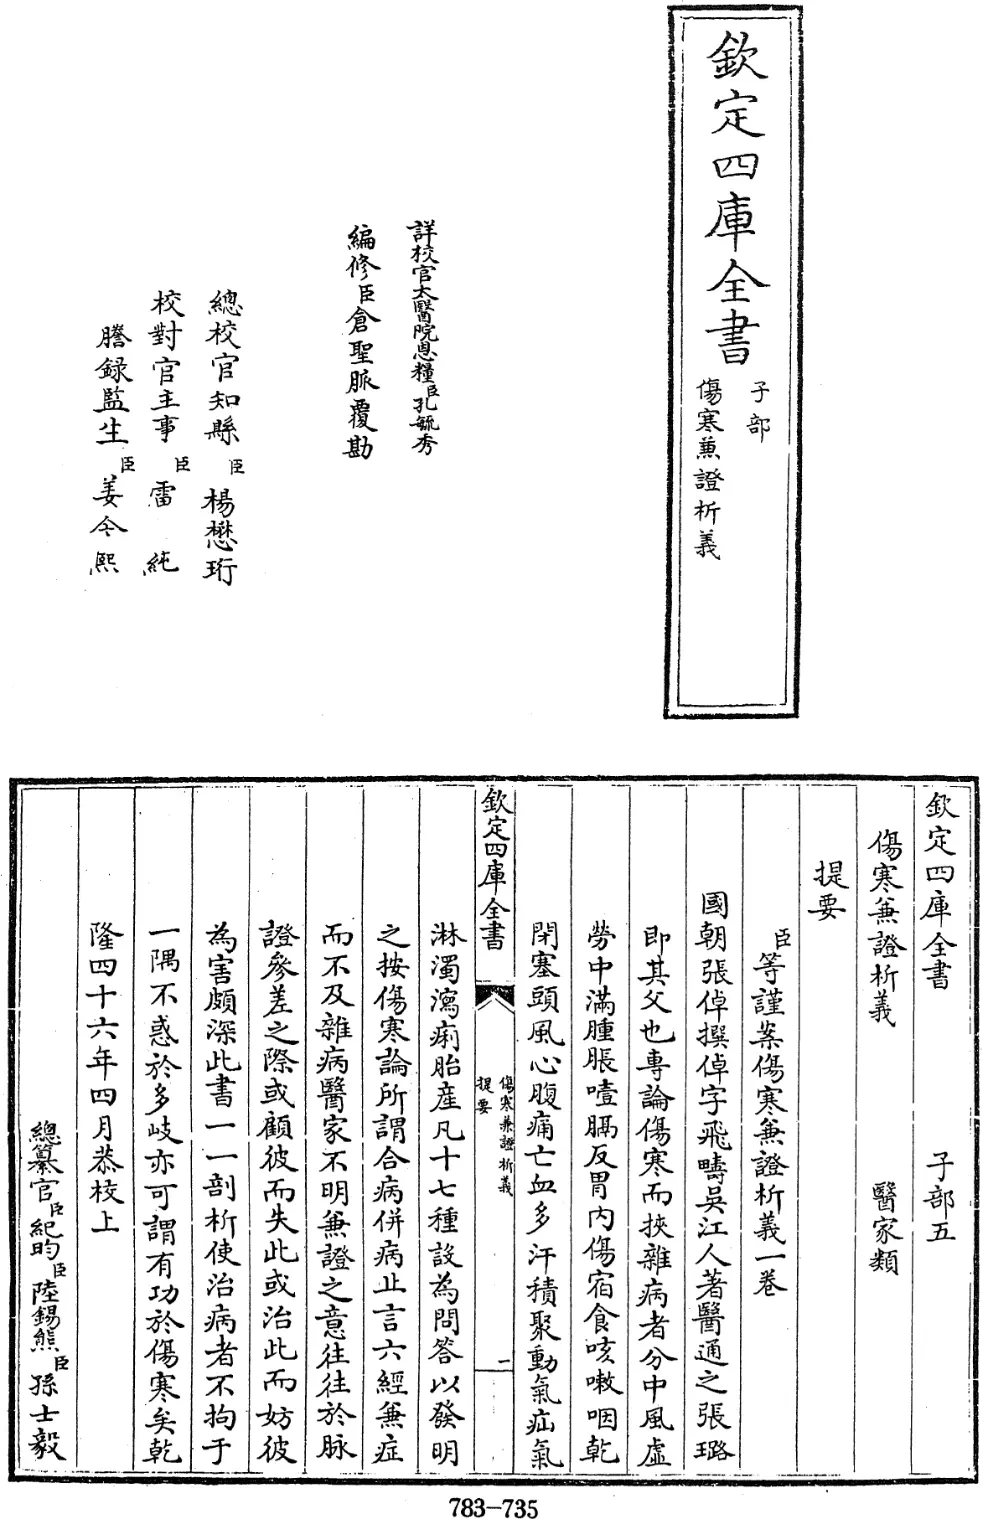 欽定四庫全書
子部
傷寒兼證析義
詳校官太醫院恩糧臣孔毓秀
編修臣倉聖脈覆勘
總校官知縣臣楊懋珩
校對官主事臣雷純
謄録監生臣姜令熙
欽定四庫全書 子部五
傷寒兼證析義 醫家類
提要
臣等謹案傷寒兼證析義一卷
國朝張倬撰倬字飛疇吳江人著醫通之張璐
即其父也專論傷寒而挾雜病者分中風虛
勞中滿腫脹噎膈反胃内傷宿食咳嗽咽乾
閉塞頭風心腹痛亡血多汗積聚動氣疝氣
欽定四庫全書
傷寒兼證析義
提要
二
淋濁瀉痢胎産凡十七種設為問答以發明
之按傷寒論所謂合病併病止言六經兼症
而不及雜病醫家不明兼證之意往往於脉
證參差之際或顧彼而失此或治此而妨彼
為害頗深此書一一剖析使治病者不拘于
一隅不惑於多岐亦可謂有功於傷寒矣乾
隆四十六年四月恭校上
總纂官臣紀昀臣陸錫熊臣孫士毅
783-735